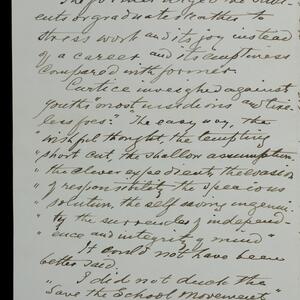 The former urged the
cuts or graduates rather to
stress work and its joy instead
of a career and its emptiness
compared with former.
Curtice inveighed against
youth's "most insidious and tire-
less foes." "The easy way, the
"wishful thought, the tempting
"short cut, the shallow assumption,
"the clever expedient, the evasion
"of responsibility, the specious
"solution, the self saving ingenui-
"ty the surrender of independ-
"ence and integrity of mind"
It could not have been
better said.
"I did not duck the
"Save the School Movement"